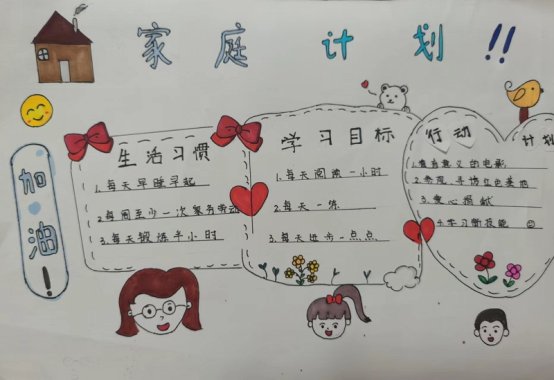 家庭计划!!
加油!
生活习惯
1.每天早睡早起
2.每周至少一次家务劳动
3.每天锻炼半小时
学习目标
1.每天阅读一小时
2.每天一练
3.每天进步一点点
行动计划
1.看有意义的电影
2.参观、寻访红色基地
3.爱心捐献
4.学习新技能